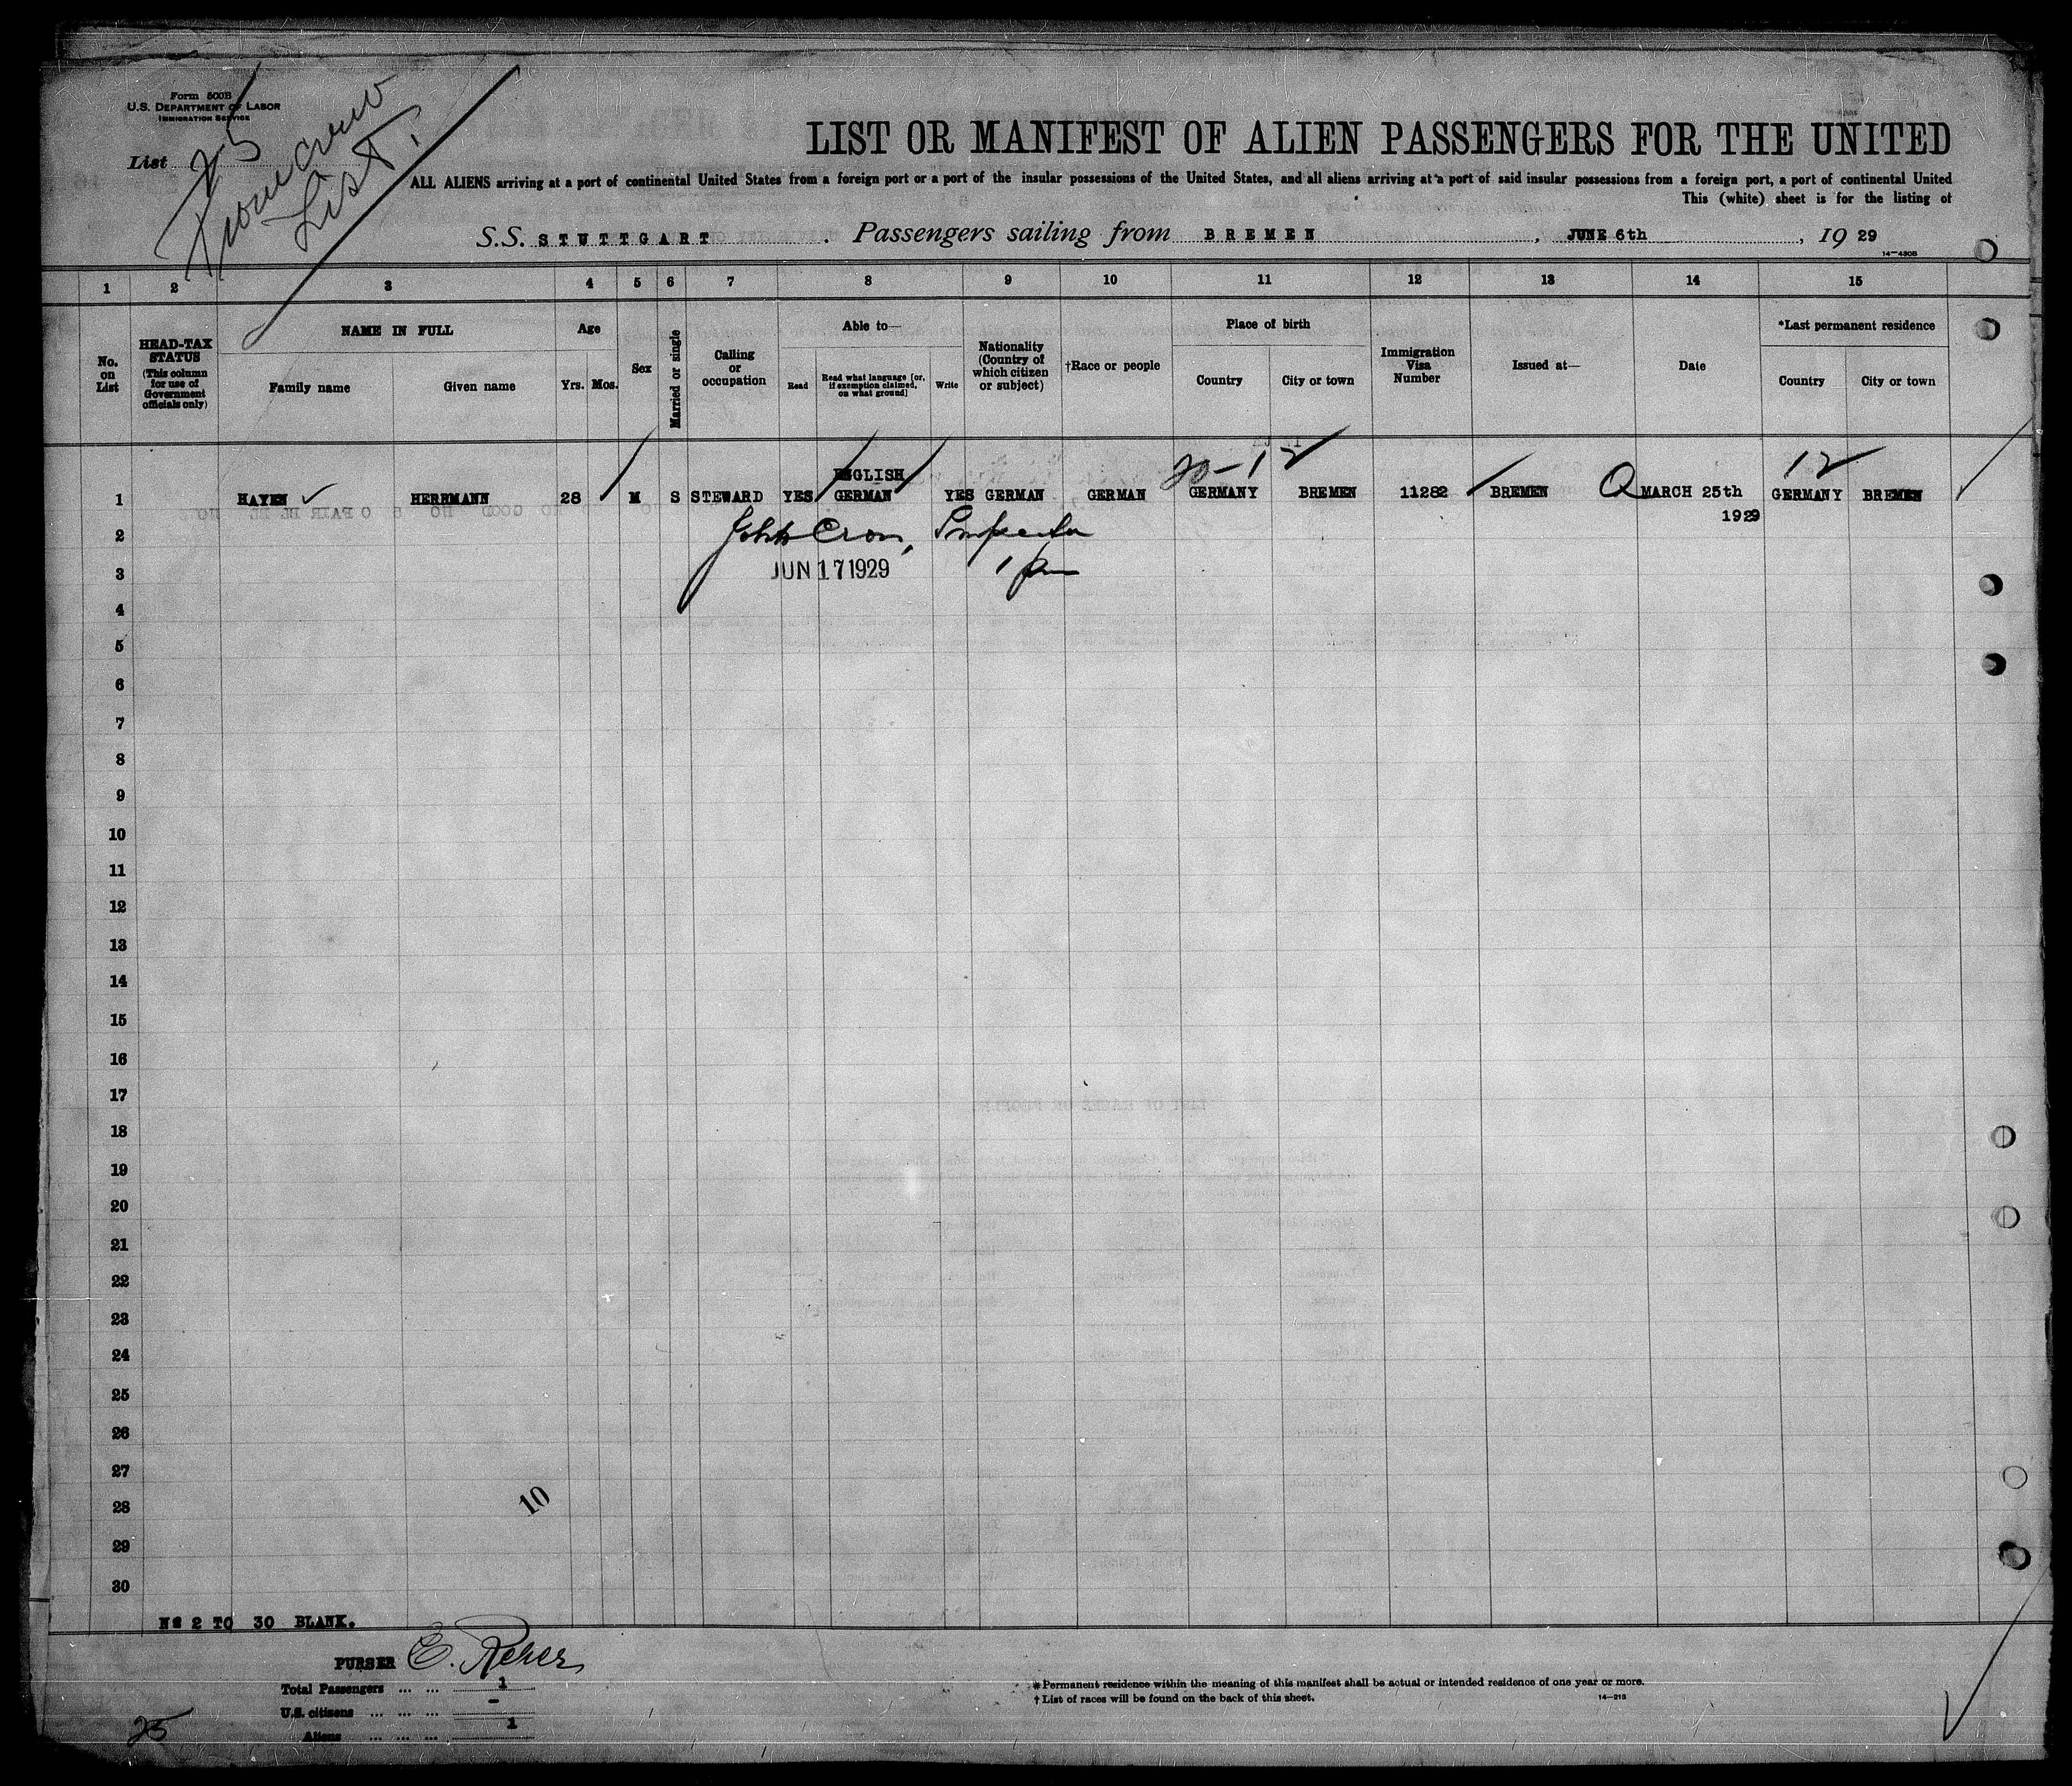 Form 500B
U.S. DEPARTMENT OF LABOR
IMMIGRATION SERVICE
List 25
From crew
List.
LIST OR MANIFEST OF ALIEN PASSENGERS FOR THE UNITED
ALL ALIENS arriving at a port of continental United States from a foreign port or a port of the insular possessions of the United States, and all aliens arriving at a port of said insular possessions from a foreign port, a port of continental United
This (white) sheet is for the listing of
S.S. STUTTGART . Passengers sailing from BREMEN , JUNE 6th , 19 29
14—430B
1 2 3 4 5 6 7 8 9 10 11 12 13 14 15
No. on List
HEAD-TAX STATUS (This column for use of Government officials only)
NAME IN FULL
Family name Given name
Age
Yrs. Mos.
Sex
Married or single
Calling or occupation
Able to—
Read Read what language [or, if exemption claimed, on what ground] Write
Nationality (Country of which citizen or subject)
†Race or people
Place of birth
Country City or town
Immigration Visa Number
Issued at—
Date
*Last permanent residence
Country City or town
ENGLISH 20-12 12
1 HAYEN HERRMANN 28 M S STEWARD YES GERMAN YES GERMAN GERMAN GERMANY BREMEN 11282 BREMEN MARCH 25th GERMANY BREMEN
1929
2 John Cron, Inspector
3 JUN 17 1929 1 pm
4
5
6
7
8
9
10
11
12
13
14
15
16
17
18
19
20
21
22
23
24
25
26
27
28
10
29
30
Nº 2 TO 30 BLANK.
PURSER E. Reher
Total Passengers ... ... 1
U.S. citizens ... ... ... -
Aliens ... ... ... 1
* Permanent residence within the meaning of this manifest shall be actual or intended residence of one year or more.
† List of races will be found on the back of this sheet.
14—213
25